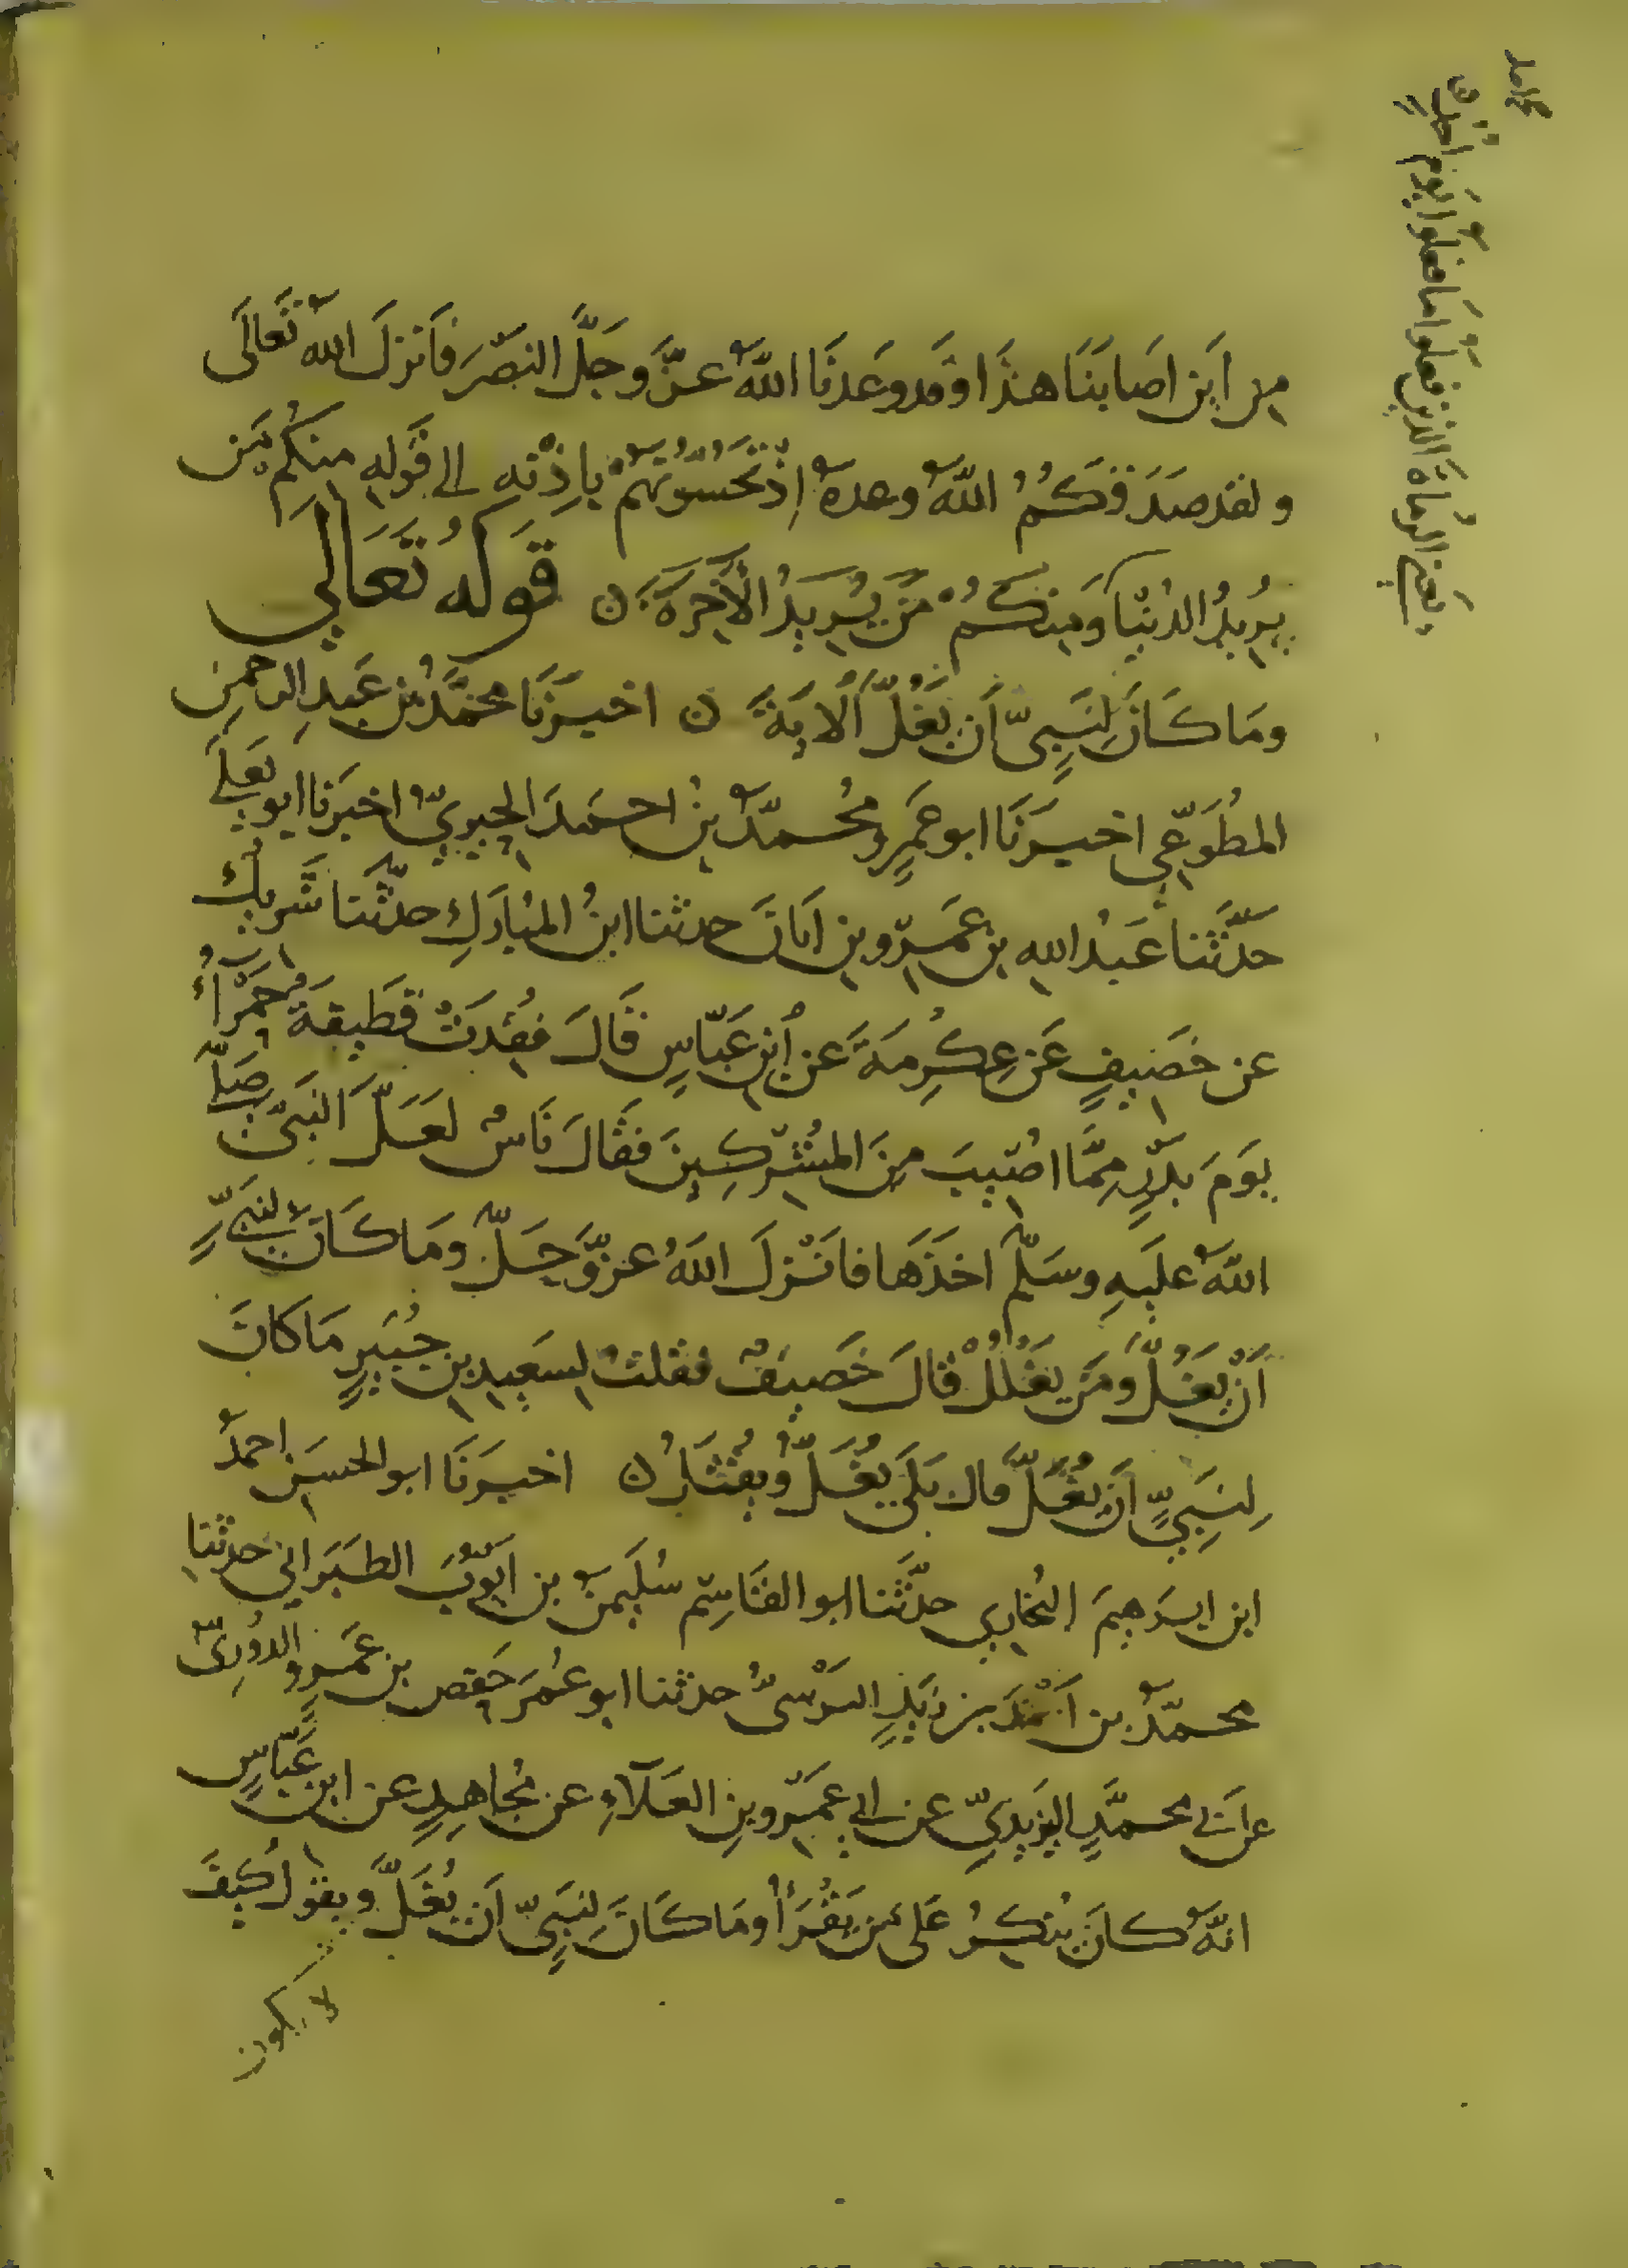 من اَين اصَابَنَا هذَا وقَد وعَدنَا اللهُ عزَّ وجَلَّ النصْرَ فاَنزلَ الله تَعالَى
ولقد صدَقَكُمُ اللهُ وعدهُ اِذْ تَحُسُّونَهُمْ باِذْنهِ الى قَولهِ منكُم مَن
يُريدُ الدُنْيَا وَمِنكُمْ مَنْ يُرِيدُ الْآخِرَةَ ن قَولهُ تَعَالَى
ومَا كَانَ لِنَبِىٍّ اَن يَغُلَّ الايةَ ن اخبرنَا محمَّدُ بن عَبدِ الرحمنِ
المطَوّعِي اخبرَنَا ابو عَمرٍو محُمدُ بنُ احمَدَ الحِيرىُّ اخبَرنَا ابو يَعلَى
حَدَّثَنا عَبدُ اللهِ بن عَمرِو بن اَبَانَ حدثنا ابنُ المبُارَكِ حدثَنا شَريكُ
عن خَصَيفٍ عَن عِكرِمَةَ عن ابن عَبّاسٍ قَالَ فقُدَتْ قطَيفةٌ حَمرْاءُ
يَومَ بَدرٍ مِمَّا اصُيبَ مِنَ المشُرِكِينَ فَقَالَ نَاسٌ لعَلَّ النَبىَّ صَلىَّ
اللهُ علَيهِ وسَلّمَ اخَذَهَا فانَزلَ اللهُ عزوَّجَلّ ومَا كَانَ لِنَبىٍّ
اَنْ يَغُلَّ وَمَن يَغْلُلْ قالَ خَصيَفٌ فقلت لسَعِيدِ بن جُبَيرٍ مَا كانَ
لِنَبِىٍّ اَن يُغَلَّ قال بَلَى يُغَلُّ ويُقْتَلُ ن اخبرَنَا ابو الحسَن احمدُ
ابن ابرهيمَ النجاري حدَّثَنا ابو القَاسِم سُلَيمنُ بن اَيّوُبَ الطبَراني حدثنا
محمدّ بن اَحْمَدَ بن زَيدٍ النَرْسىُّ حدثنا ابو عُمَرَ حَفص بن عَمرٍو الدوُرِىُّ
عن اَبى محمدٍّ اليزَيدِىِّ عن ابى عَمرِو بنِ العَلآءِ عن مُجاهِدٍ عن ابن عَبّاسٍ
انَّهُ كانَ يُنكِرُ عَلى مَن يَقْرَأُ ومَا كَانَ لِنَبىٍّ اَن يُغَلَّ ويقول كَيفَ
لا يكون
يَعنىِ الرُماةَ الذين فعلوا مَا فعَلوا يَوم احُدٍ